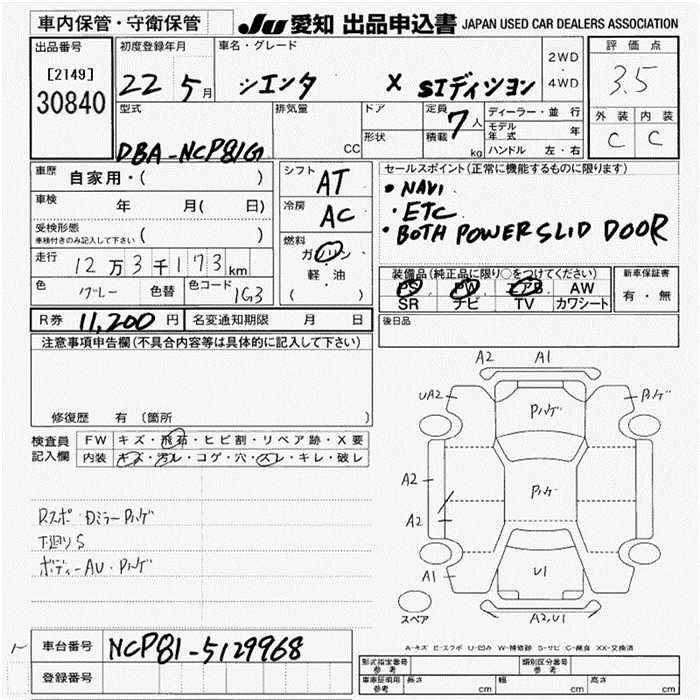 車内保管・守衛保管
JU 愛知 出品申込書 JAPAN USED CAR DEALERS ASSOCIATION
出品番号
[2149]
30840
初度登録年月
22 5月
車名・グレード
シエンタ X SIディション
2WD
・
4WD
評価点
3.5
外装 内装
C C
型式
DBA-NCP81G
排気量
CC
ドア
形状
定員 7人
積載 kg
ディーラー・並行
モデル年式 年
ハンドル 左・右
車歴 自家用・( )
車検 年 月( 日)
受検形態
車検付きのみ記入して下さい ( )
走行 12万3千173km
色 グレー 色替 色コード 1G3
シフト AT
冷房 AC
燃料
ガソリン
・
軽・油
( )
セールスポイント(正常に機能するものに限ります)
• NAVI
・ETC
• BOTH POWER SLID DOOR
装備品(純正品に限り○をつけてください)
PS PW エアB AW
SR ナビ TV カワシート
新車保証書
有・無
R券 11,200円 名変通知期限 月 日
後日品
注意事項申告欄(不具合内容等は具体的に記入して下さい)
修復歴 有 〔箇所 〕
検査員
記入欄
FW キズ・飛石・ヒビ割・リペア跡・X要
内装 キズ・汚レ・コゲ・穴・スレ・キレ・破レ
Rスポ・Dミラー Pハゲ
下廻りS
ボディーAU・Pハゲ
A2 A1
UA2
Pハゲ
Pハゲ
A2
Pハゲ
A2
A1
U1
A2,U1
スペア
A-キズ E-エクボ U-凹み W-補修跡 S-サビ C-腐食 XX-交換済
車台番号 NCP81-5129968
登録番号
形式指定番号
参考
類別区分番号
参考
車庫証明用
参考
長さ cm 幅 cm 高さ cm